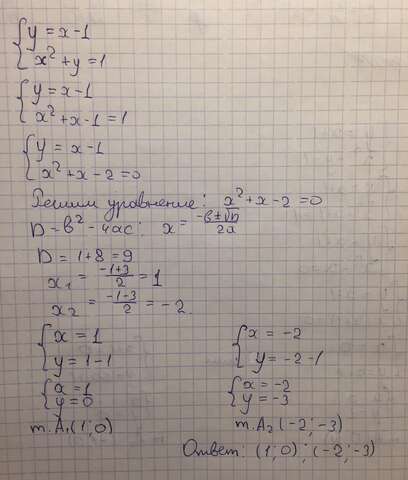 { y = x - 1
x² + y = 1
{ y = x - 1
x² + x - 1 = 1
{ y = x - 1
x² + x - 2 = 0
Решим уравнение: x² + x - 2 = 0
D = b² - 4ac; x = (-b ± √D)/2a
D = 1 + 8 = 9
x₁ = (-1+3)/2 = 1
x₂ = (-1-3)/2 = -2
{ x = 1 { x = -2
y = 1 - 1 y = -2 - 1
{ x = 1 { x = -2
y = 0 y = -3
т. A₁ (1; 0) т. A₂ (-2; -3)
Ответ: (1; 0); (-2; -3)